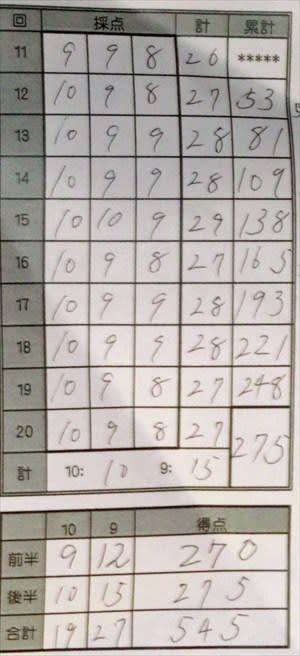 回 採点 計 累計
11 9 9 8 26 *****
12 10 9 8 27 53
13 10 9 9 28 81
14 10 9 9 28 109
15 10 10 9 29 138
16 10 9 8 27 165
17 10 9 9 28 193
18 10 9 9 28 221
19 10 9 8 27 248
20 10 9 8 27 275
計 10: 10 9: 15
10 9 得点
前半 9 12 270
後半 10 15 275
合計 19 27 545